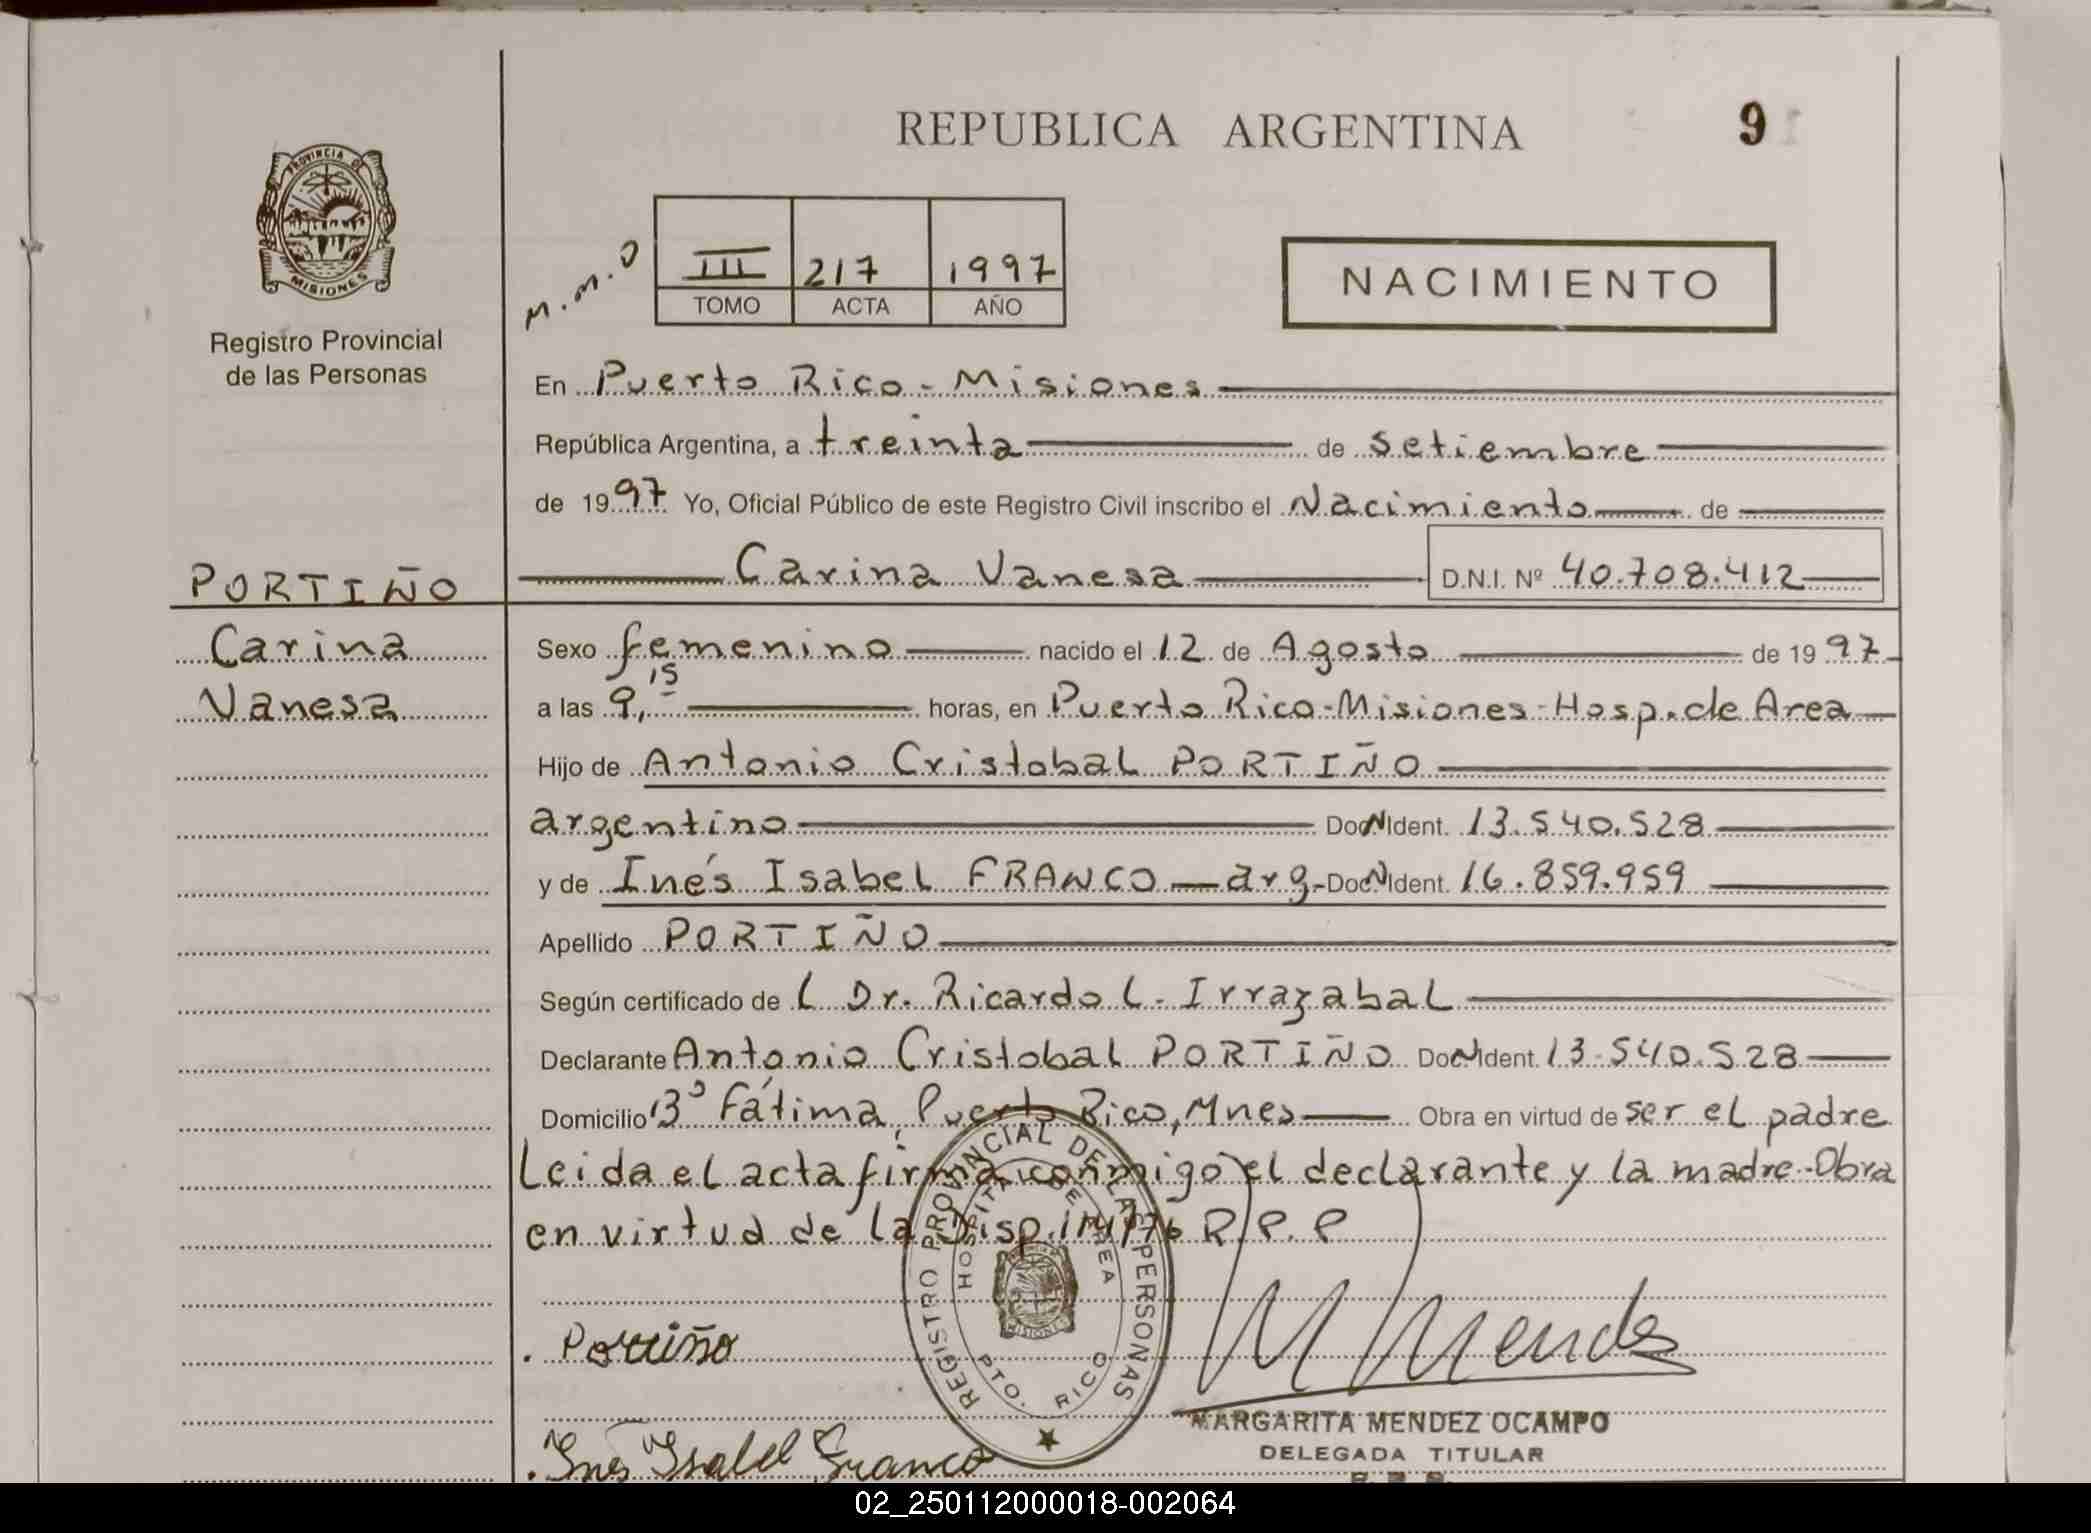 REPUBLICA ARGENTINA
9
PROVINCIA DE
MISIONES
Registro Provincial
de las Personas
M.M.O
III 217 1997
TOMO ACTA AÑO
NACIMIENTO
En Puerto Rico - Misiones
República Argentina, a treinta de setiembre
de 1997 Yo, Oficial Público de este Registro Civil inscribo el Nacimiento de
Carina Vanesa D.N.I. Nº 40.708.412
PORTIÑO
Carina
Vanesa
Sexo femenino nacido el 12 de Agosto de 1997
a las 9,15 horas, en Puerto Rico-Misiones-Hosp. de Area
Hijo de Antonio Cristobal PORTIÑO
argentino Doc N Ident. 13.540.528
y de Inés Isabel FRANCO — arg- Doc N Ident. 16.859.959
Apellido PORTIÑO
Según certificado de L Dr. Ricardo L. Irrazabal
Declarante Antonio Cristobal PORTIÑO Doc N Ident. 13.540.528
Domicilio Bº Fátima, Puerto Rico, Mnes Obra en virtud de ser el padre
Leida el acta firma conmigo el declarante y la madre-Obra
en virtud de la Disp. R.P.P
REGISTRO PROVINCIAL DE LAS PERSONAS
HOSPITAL DE AREA
MISIONES
PTO. RICO
Portiño
M Mendez
MARGARITA MENDEZ OCAMPO
DELEGADA TITULAR
Inés Isabel Franco
02_250112000018-002064